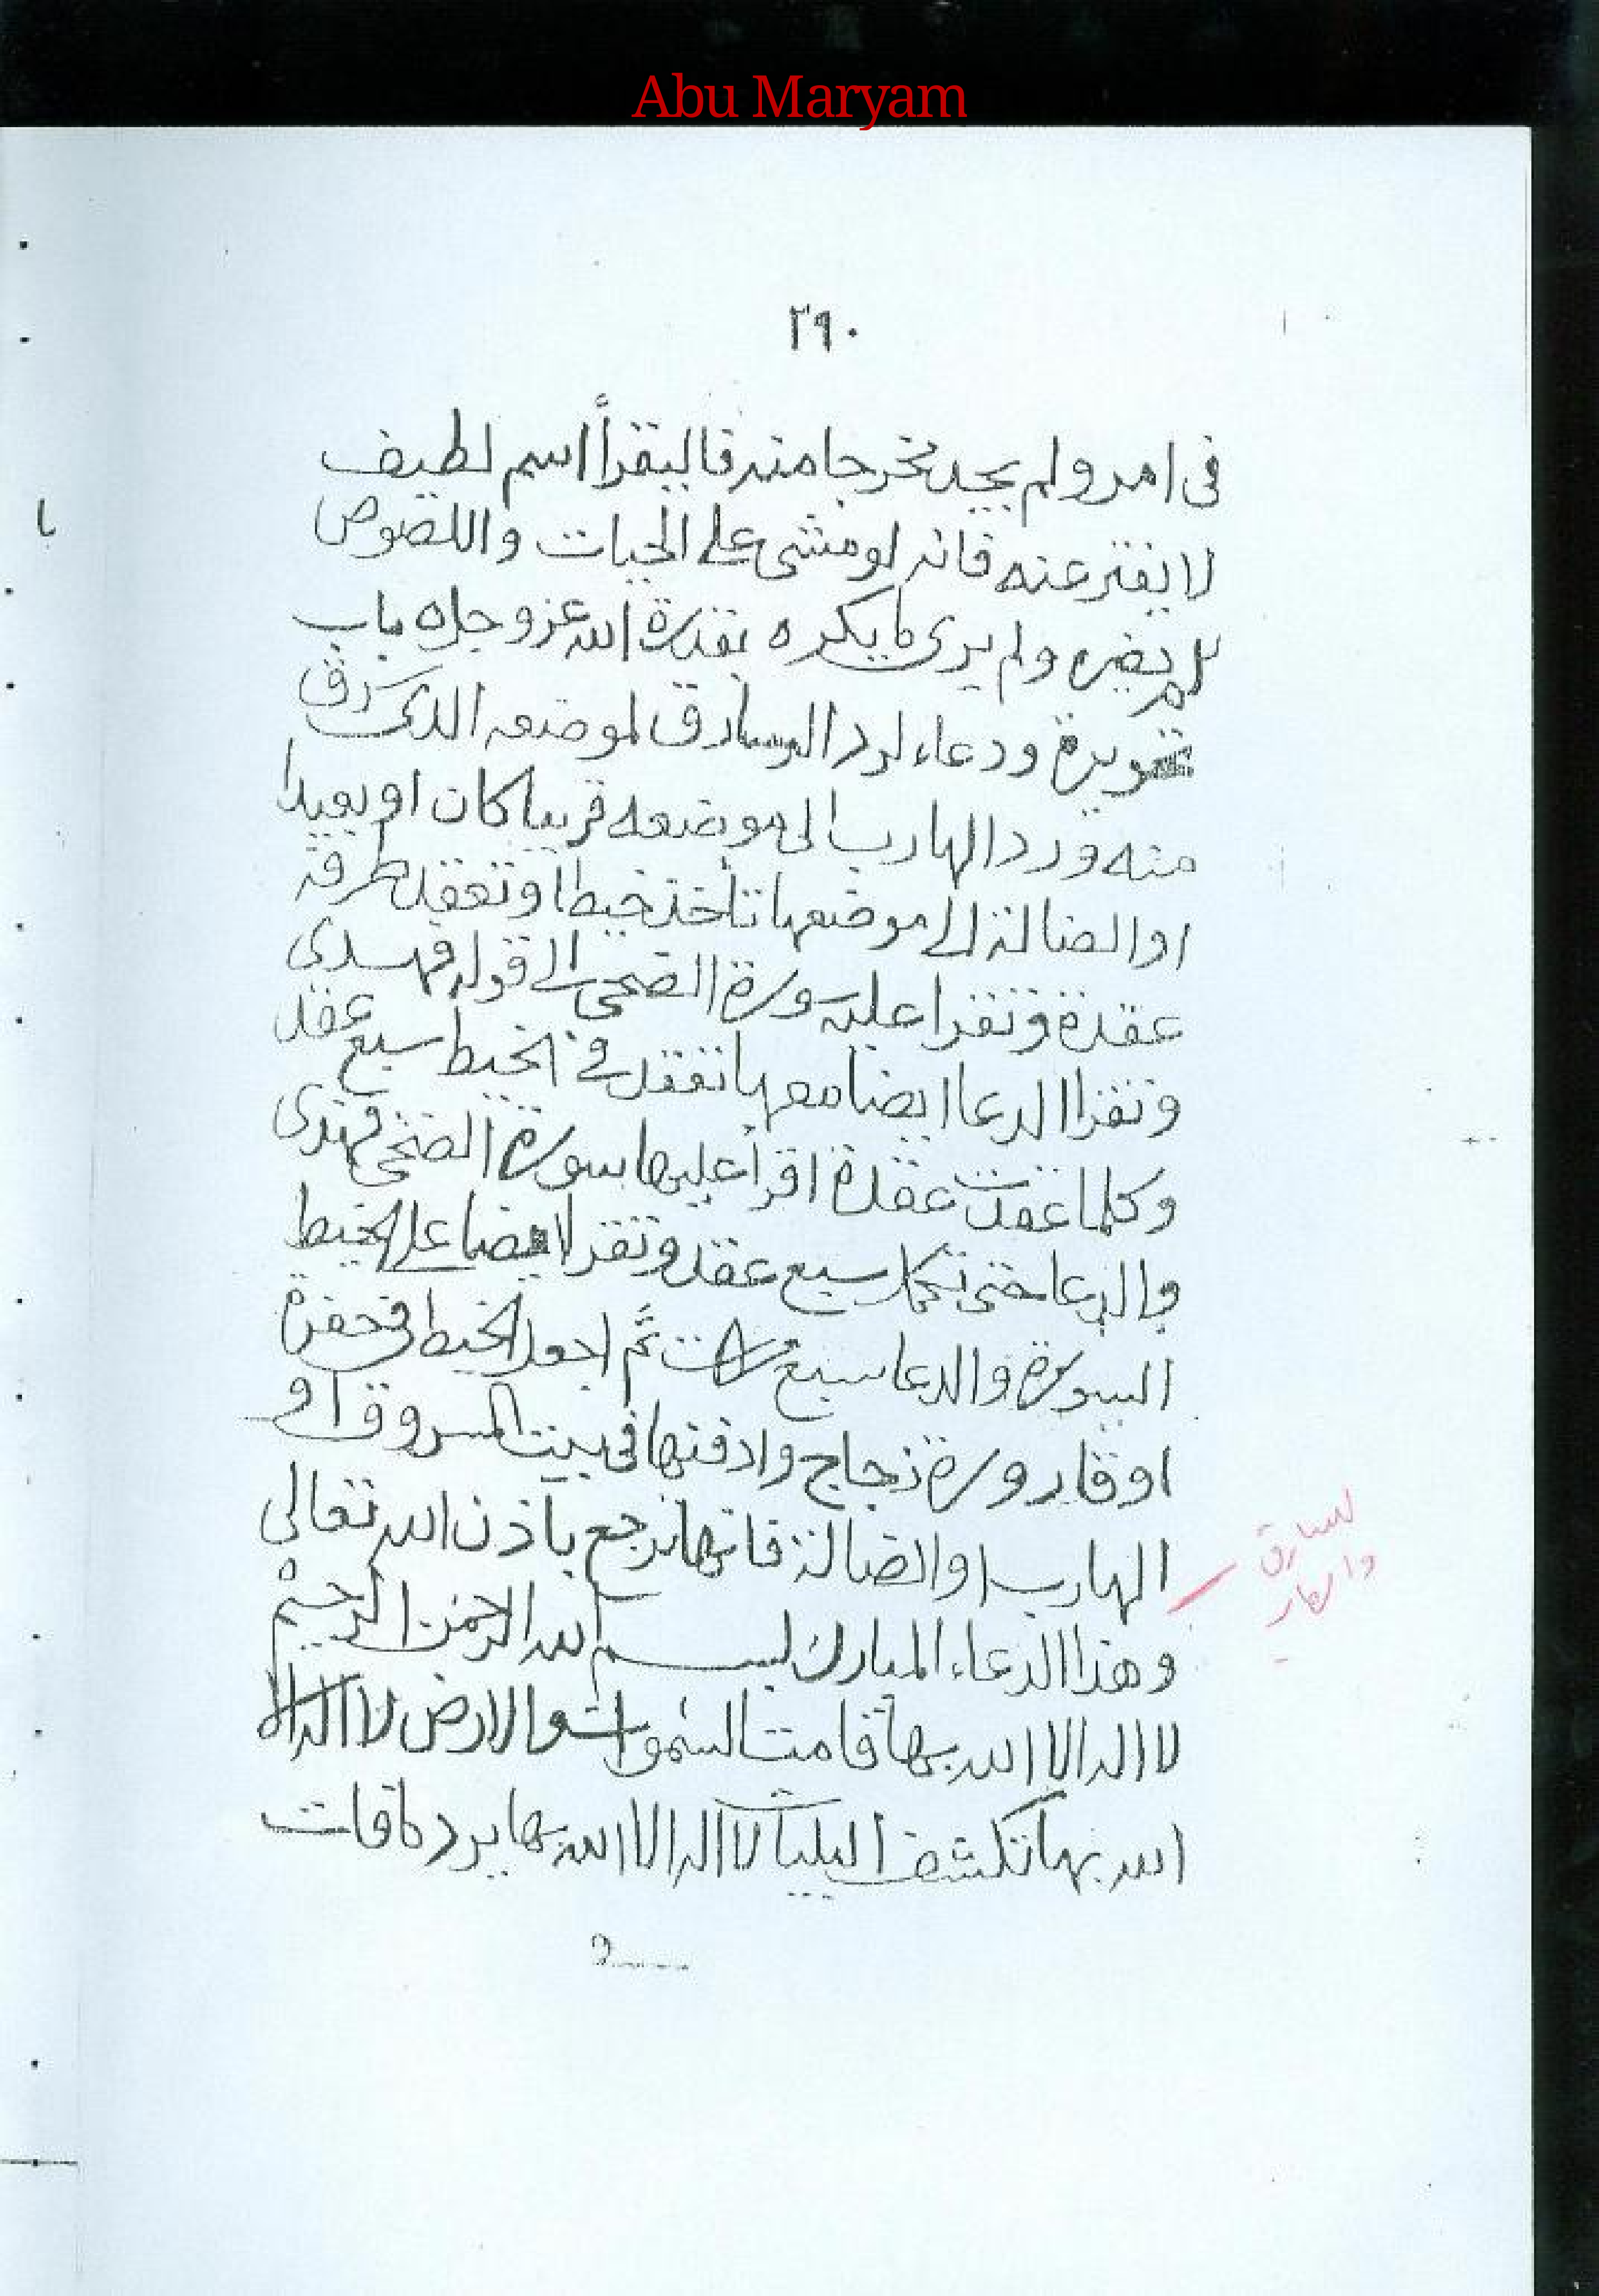 Abu Maryam
٢٩٠
فى امر ولم يجد مخرجا منه فاليقرأ اسم لطيف
لا يفتر عنه فانه لو مشى على الحيات واللصوص
لم يضره ولم يرى ما يكره بقدرة الله عز وجل ٥ باب
ودعاء لرد السارق لموضعه الذى سرق
منه ورد الهارب الى موضعه قريبا كان او بعيدا
او الضالة الى موضعها تأخذ خيطا وتعقد طرفه
عقدة وتقرا عليه سورة الضحى الى قوله فهدى
وتقرا الدعا ايضا معها تعقد في الخيط سبع عقد
وكلما عقدت عقدة اقرأ عليها سورة الضحى فهدى
والدعا حتى تكمل سبع عقد وتقرا ايضا على الخيط
السورة والدعا سبع مرات ثم اجعل الخيط فى حفرة
او قارورة زجاج وادفنها فى بيت المسروق او
الهارب او الضالة فانها ترجع باذن الله تعالى
وهذا الدعاء المبارك بسم الله الرحمن الرحيم
لا اله الا الله بها قامت السموات والارض لا اله الا
الله بها تكشف البليات لا اله الا الله بها يرد ما فات
للسارق